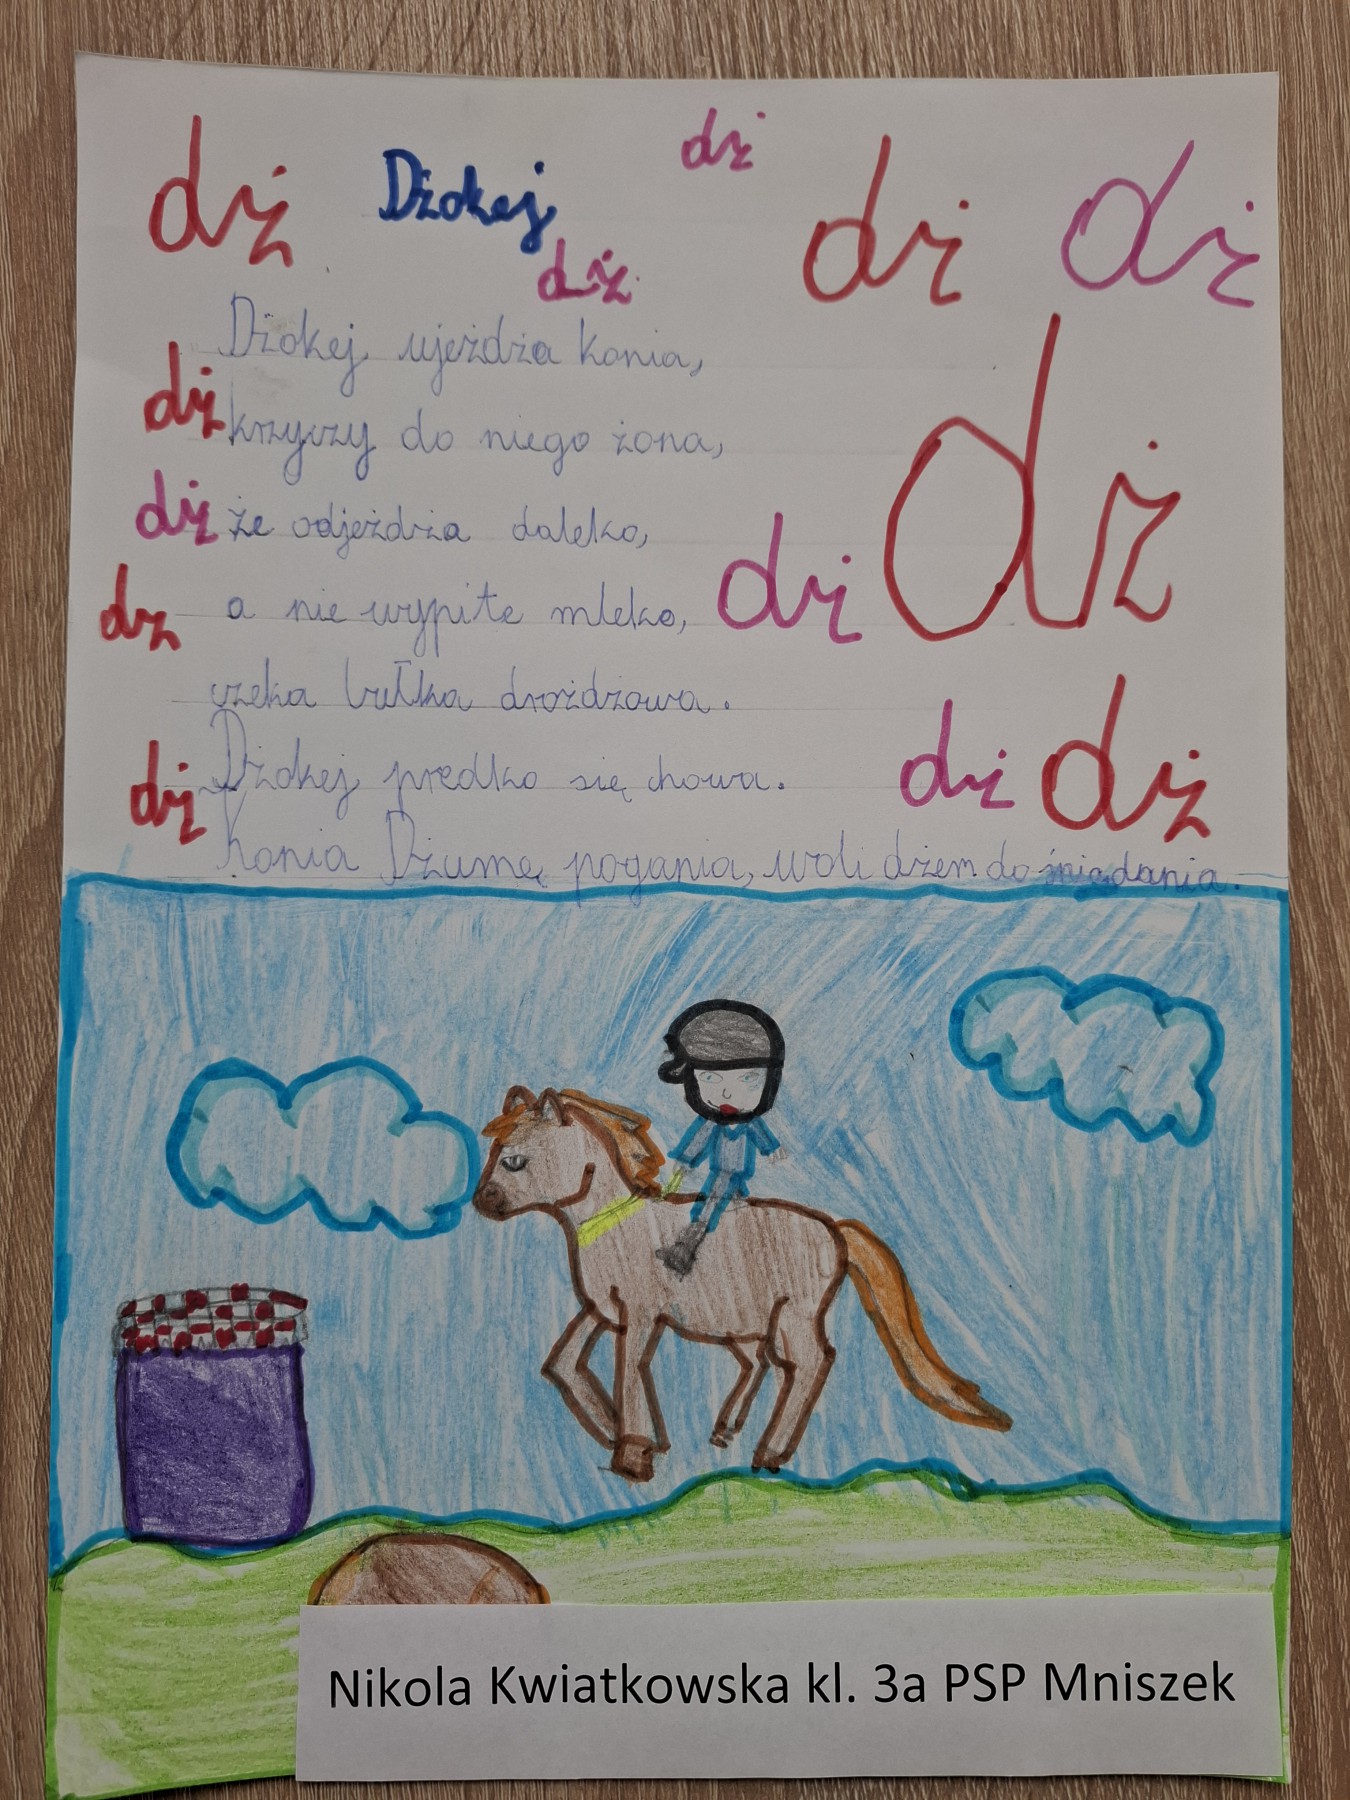 dż Dżokej dż dż dż
dż
Dżokej ujeżdża konia,
dż krzyczy do niego żona,
dż że odjeżdża daleko,
dż a nie wypite mleko, dż dż
czeka bułka drożdżowa.
dż Dżokej prędko się chowa. dż dż
Konia Dżumę pogania, woli dżem do śniadania.
Nikola Kwiatkowska kl. 3a PSP Mniszek